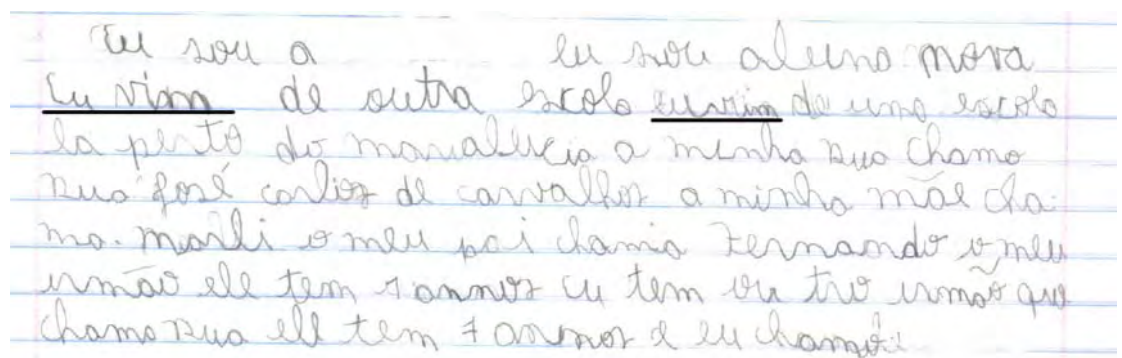 Eu sou a eu sou aluna nova
Eu vim de outra escola eu vim de uma escola
la perto do marialucia a minha rua chama
rua José carlios de carvalhos a minha mãe cha-
ma. marli o meu pai chama Fernando o meu
irmão ele tem annos eu tem ou tro irmão que
chama rua ele tem 7 annos e eu chamo